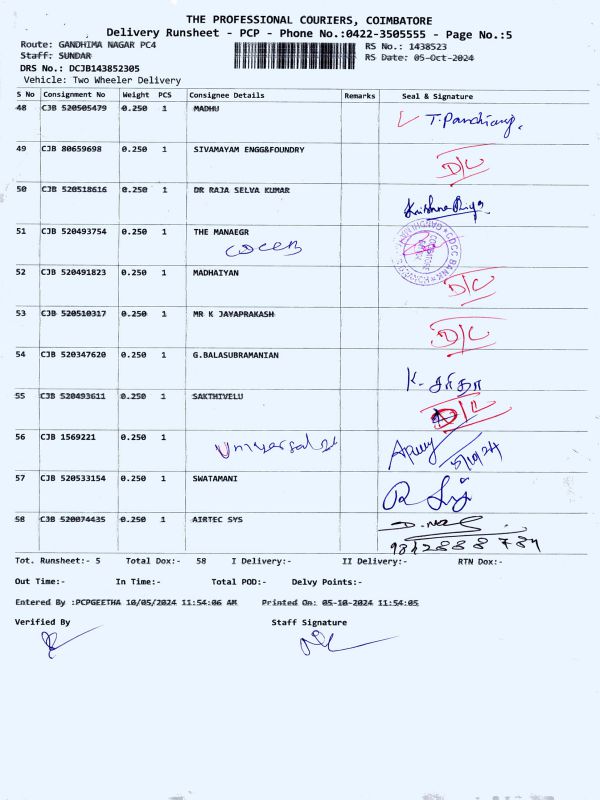 THE PROFESSIONAL COURIERS, COIMBATORE
Delivery Runsheet - PCP - Phone No.:0422-3505555 - Page No.:5
Route: GANDHIMA NAGAR PC4 RS No.: 1438523
Staff: SUNDAR RS Date: 05-Oct-2024
DRS No.: DCJB143852305
Vehicle: Two Wheeler Delivery
S No Consignment No Weight PCS Consignee Details Remarks Seal & Signature
48 CJB 520505479 0.250 1 MADHU
49 CJB 80659698 0.250 1 SIVAMAYAM ENGG&FOUNDRY
D/C
50 CJB 520518616 0.250 1 DR RAJA SELVA KUMAR
Krishna Priya
51 CJB 520493754 0.250 1 THE MANAEGR
CDCCB
CDCC BANK
52 CJB 520491823 0.250 1 MADHAIYAN
D/C
53 CJB 520510317 0.250 1 MR K JAYAPRAKASH
D/C
54 CJB 520347620 0.250 1 G.BALASUBRAMANIAN
K.
55 CJB 520493611 0.250 1 SAKTHIVELU
56 CJB 1569221 0.250 1
Universal
5/10/24
57 CJB 520533154 0.250 1 SWATAMANI
58 CJB 520074435 0.250 1 AIRTEC SYS
Tot. Runsheet:- 5 Total Dox:- 58 I Delivery:- II Delivery:- RTN Dox:-
Out Time:- In Time:- Total POD:- Delvy Points:-
Entered By :PCPGEETHA 10/05/2024 11:54:06 AM Printed On: 05-10-2024 11:54:05
Verified By Staff Signature